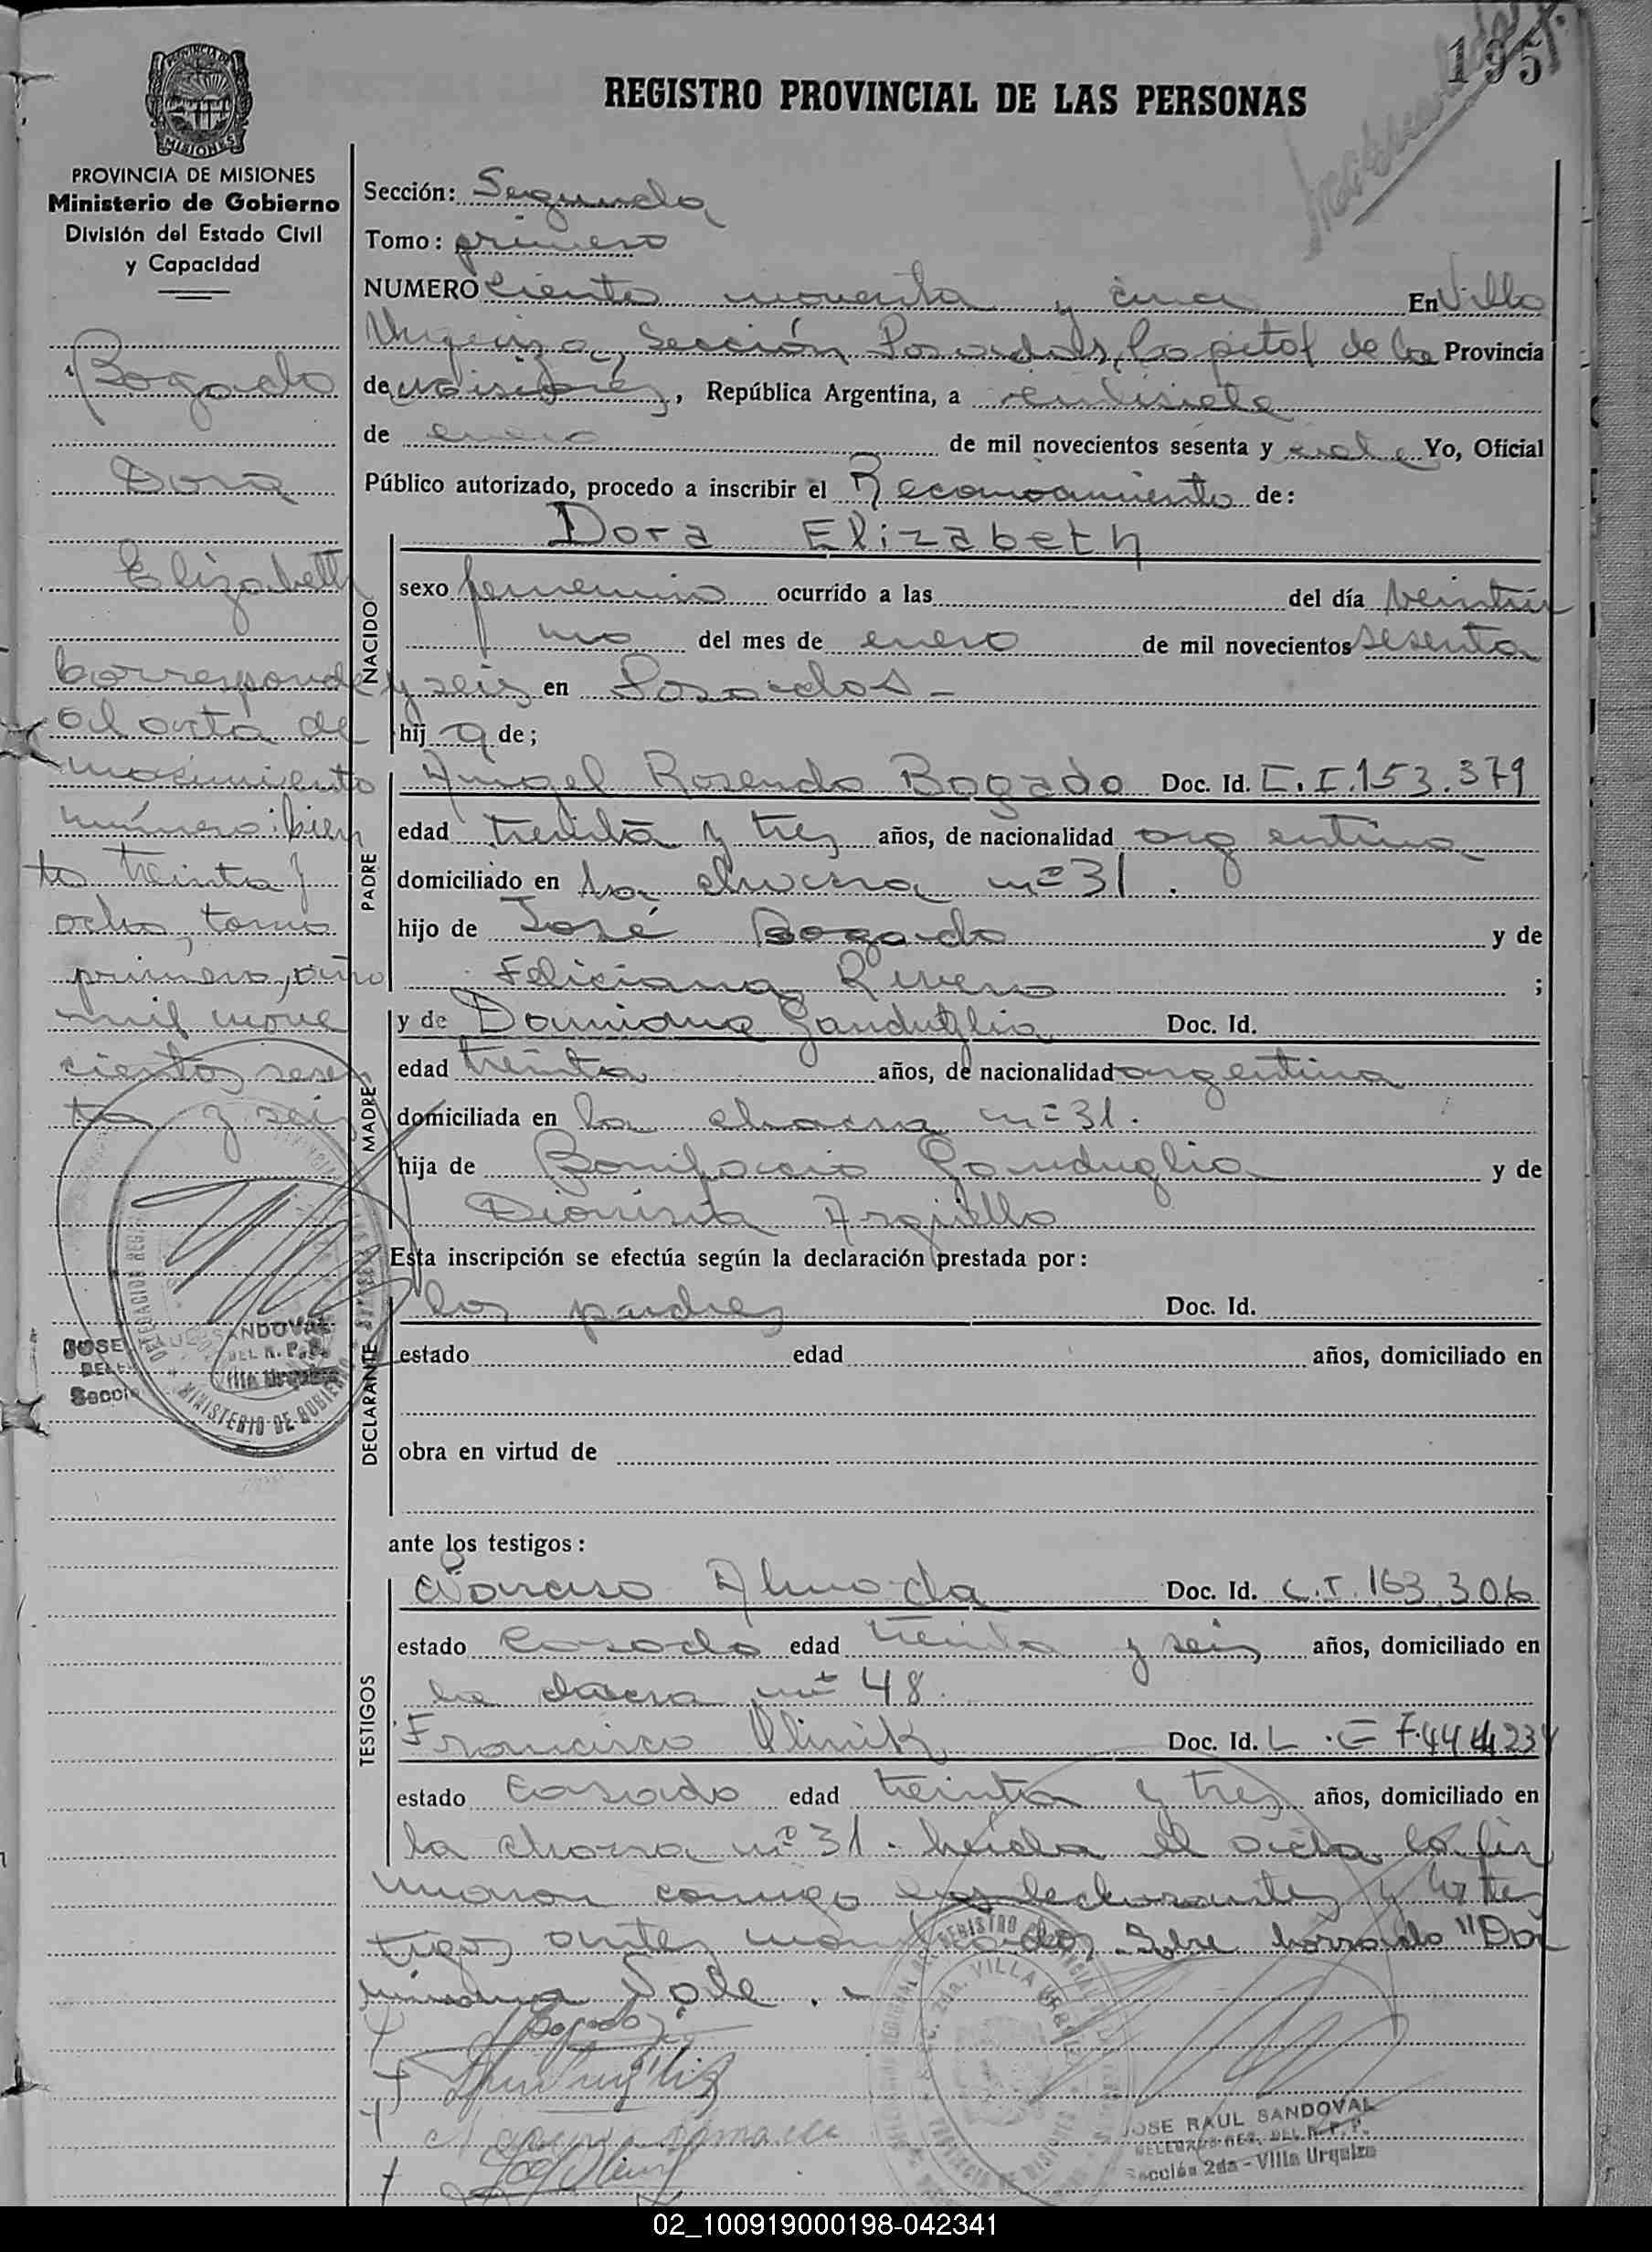 195
REGISTRO PROVINCIAL DE LAS PERSONAS
PROVINCIA DE MISIONES
Ministerio de Gobierno
División del Estado Civil
y Capacidad
Bogado
Dora
Elizabeth
Corresponde
al acta de
nacimiento
número: Cien
to treinta y
ocho, tomo
primero, año
mil nove
cientos sesen
ta y seis
Sección: Segunda
Tomo: primero
NUMERO Ciento noventa y cinco En Villa
Urquiza, Sección Posadas, Capital de la Provincia
de Misiones, República Argentina, a
de enero de mil novecientos sesenta y Yo, Oficial
Público autorizado, procedo a inscribir el Reconocimiento de:
NACIDO
Dora Elizabeth
sexo femenino ocurrido a las del día veintiu
no del mes de enero de mil novecientos sesenta
y seis en Posadas -
hij a de;
PADRE
Angel Rosendo Bogado Doc. Id. C.I. 153.379
edad treinta y tres años, de nacionalidad argentina
domiciliado en la chacra nº 31.
hijo de José Bogado y de
Feliciana Rivero ;
MADRE
y de Damiana Ganduglia Doc. Id.
edad treinta años, de nacionalidad argentina
domiciliada en la chacra nº 31.
hija de Bonifacio Ganduglia y de
Dionisia Argüello
Esta inscripción se efectúa según la declaración prestada por:
DECLARANTE
los padres Doc. Id.
estado edad años, domiciliado en
obra en virtud de
ante los testigos:
TESTIGOS
Narciso Almada Doc. Id. C.I. 163.306
estado Casado edad treinta y seis años, domiciliado en
la chacra nº 48.
Francisco Olinik Doc. Id. L.E 7.444.234
estado Casado edad treinta y tres años, domiciliado en
la chacra nº 31 - Leida el acta la fir
maron conmigo los declarantes y los tes
tigos antes mencionados. Sobre borrado "Da
miana Vale. -
Bogado
JOSE RAUL SANDOVAL
DELEGADO REG. DEL R.P.P.
Sección 2da - Villa Urquiza
02_100919000198-042341